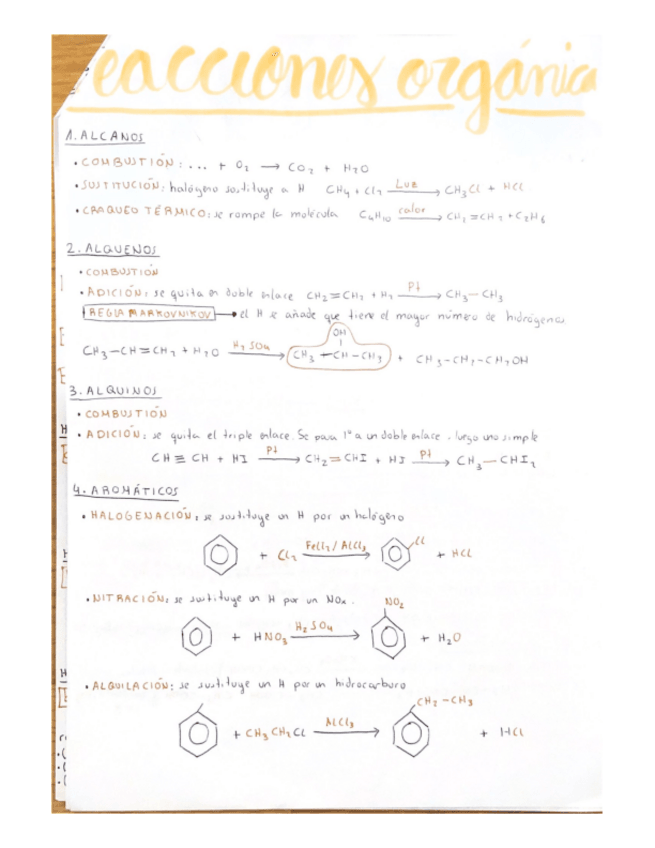 eacciones orgánica
1. ALCANOS
• COMBUSTIÓN: ... + O2 → CO2 + H2O
• SUSTITUCIÓN: halógeno sustituye a H CH4 + Cl2 Luz → CH3Cl + HCl
• CRAQUEO TÉRMICO: se rompe la molécula C4H10 calor → CH2=CH2 + C2H6
2. ALQUENOS
• COMBUSTIÓN
• ADICIÓN: se quita en doble enlace CH2=CH2 + H2 Pt → CH3-CH3
REGLA MARKOVNIKOV → el H se añade que tiene el mayor número de hidrógenos
OH
CH3-CH=CH2 + H2O H2SO4 → CH3-CH-CH3 + CH3-CH2-CH2OH
3. ALQUINOS
• COMBUSTIÓN
• ADICIÓN: se quita el triple enlace. Se pasa 1º a un doble enlace, luego uno simple
CH≡CH + HI Pt → CH2=CHI + HI Pt → CH3-CHI2
4. AROMÁTICOS
• HALOGENACIÓN: se sustituye un H por un halógeno
+ Cl2 FeCl3/AlCl3 → Cl + HCl
• NITRACIÓN: se sustituye un H por un NOx.
NO2
+ HNO3 H2SO4 → + H2O
• ALQUILACIÓN: se sustituye un H por un hidrocarburo
CH2-CH3
+ CH3CH2Cl AlCl3 → + HCl